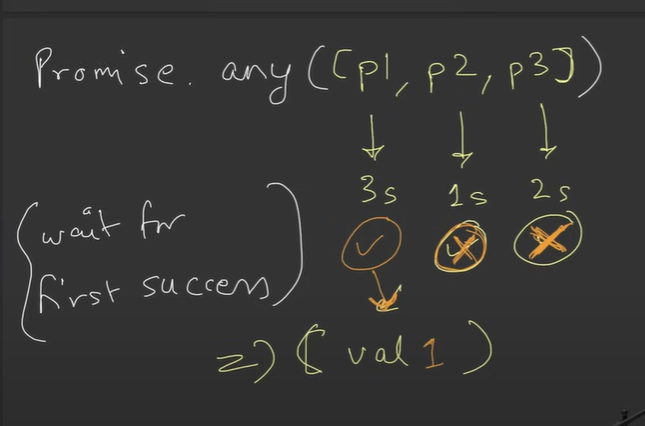 Promise. any([p1, p2, p3])
3s 1s 2s
(wait for
first success)
=> ( val 1 )